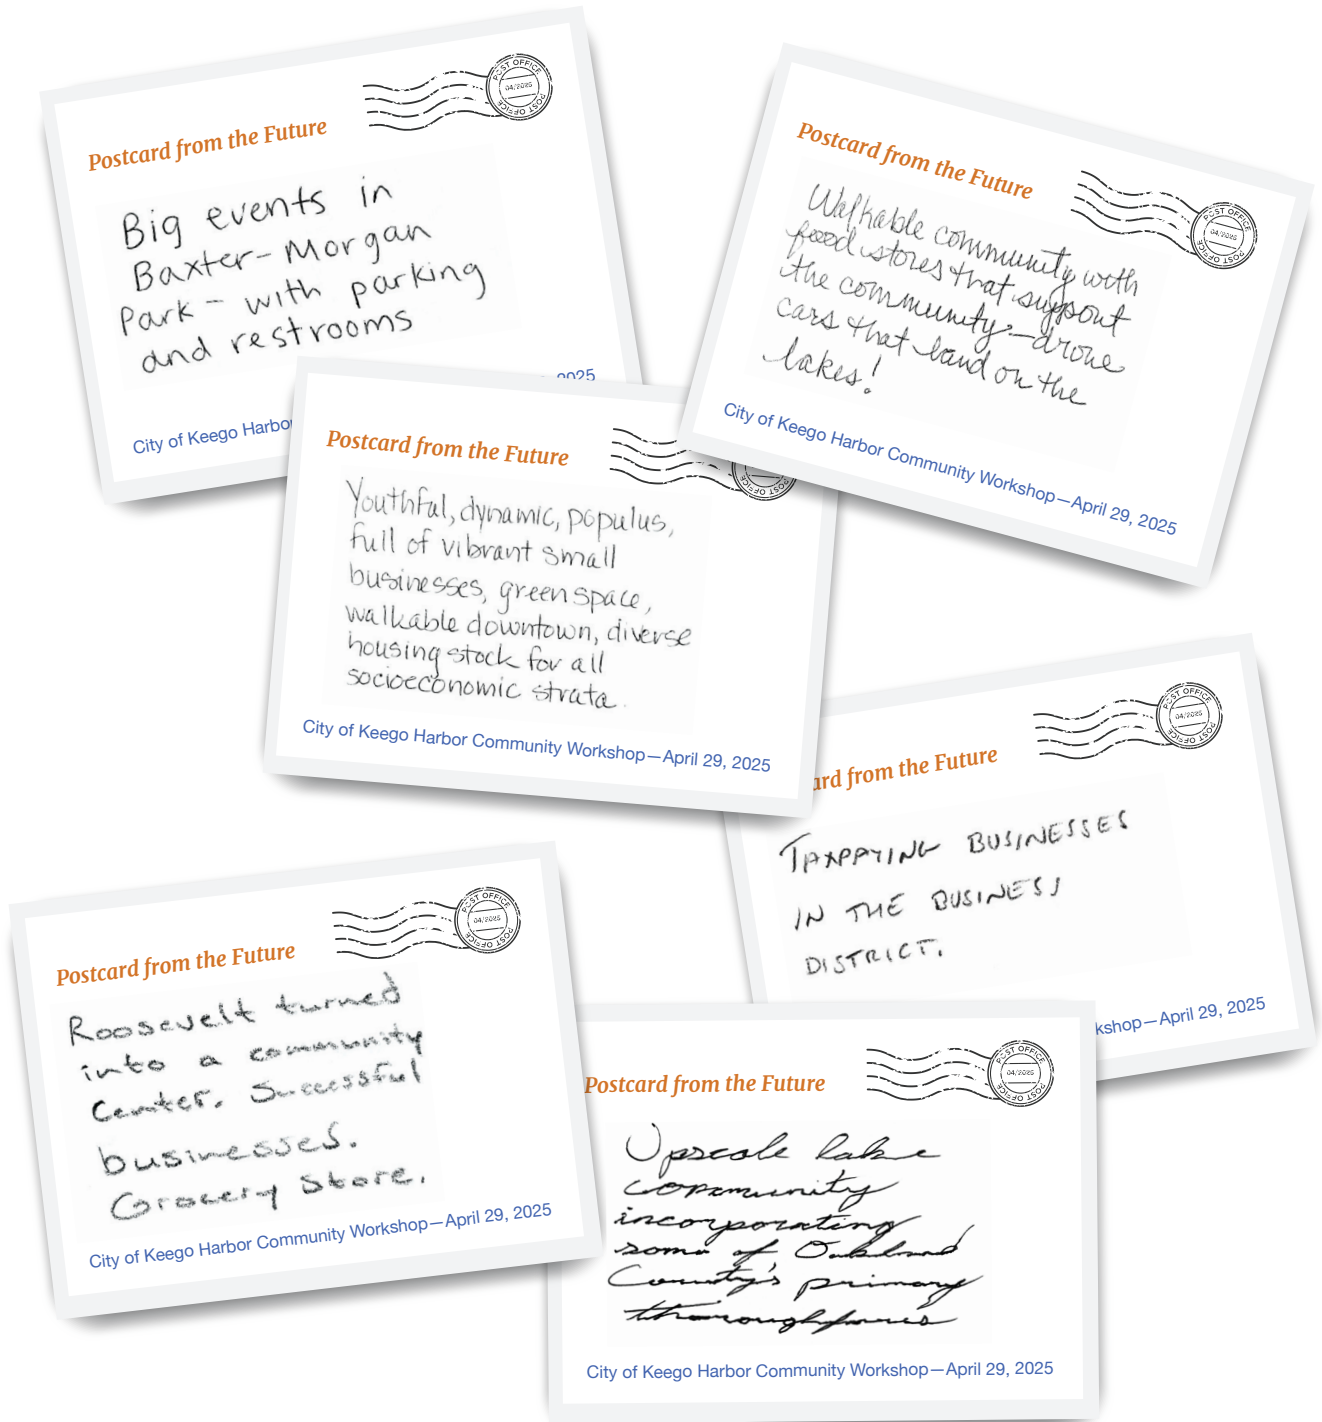 POST OFFICE
04/2025
POST OFFICE
Postcard from the Future
Big events in
Baxter-Morgan
Park - with parking
and restrooms
2025
City of Keego Harbor
POST OFFICE
04/2025
POST OFFICE
Postcard from the Future
Walkable community with
food stores that support
the community - drone
cars that land on the
lakes!
City of Keego Harbor Community Workshop—April 29, 2025
Postcard from the Future
Youthful, dynamic, populus,
full of vibrant small
businesses, greenspace,
walkable downtown, diverse
housing stock for all
socioeconomic strata.
City of Keego Harbor Community Workshop—April 29, 2025
POST OFFICE
04/2025
POST OFFICE
ard from the Future
TAXPAYING BUSINESSES
IN THE BUSINESS
DISTRICT.
kshop—April 29, 2025
POST OFFICE
04/2025
POST OFFICE
Postcard from the Future
Roosevelt turned
into a community
Center. Successful
businesses.
Grocery Store.
City of Keego Harbor Community Workshop—April 29, 2025
POST OFFICE
04/2025
POST OFFICE
Postcard from the Future
Upscale lake
community
incorporating
some of Oakland
County's primary
thoroughfares
City of Keego Harbor Community Workshop—April 29, 2025